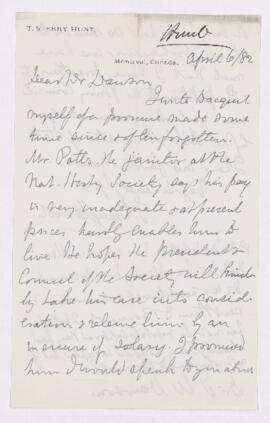 Hunt
T. STERRY HUNT.
MONTREAL, CANADA.
April 6/82
Dear Dr Dawson
I write to acquit
myself of a promise made some
time since & often forgotten.
Mr Potts the janitor at the
Nat. Hist. Society says his pay
is very inadequate & at present
prices hardly enables him to
live. He hopes the president &
Council of the Society will kind
ly take his case into consid-
eration & relieve him by an
increase of salary. I promised
him I would speak to you about